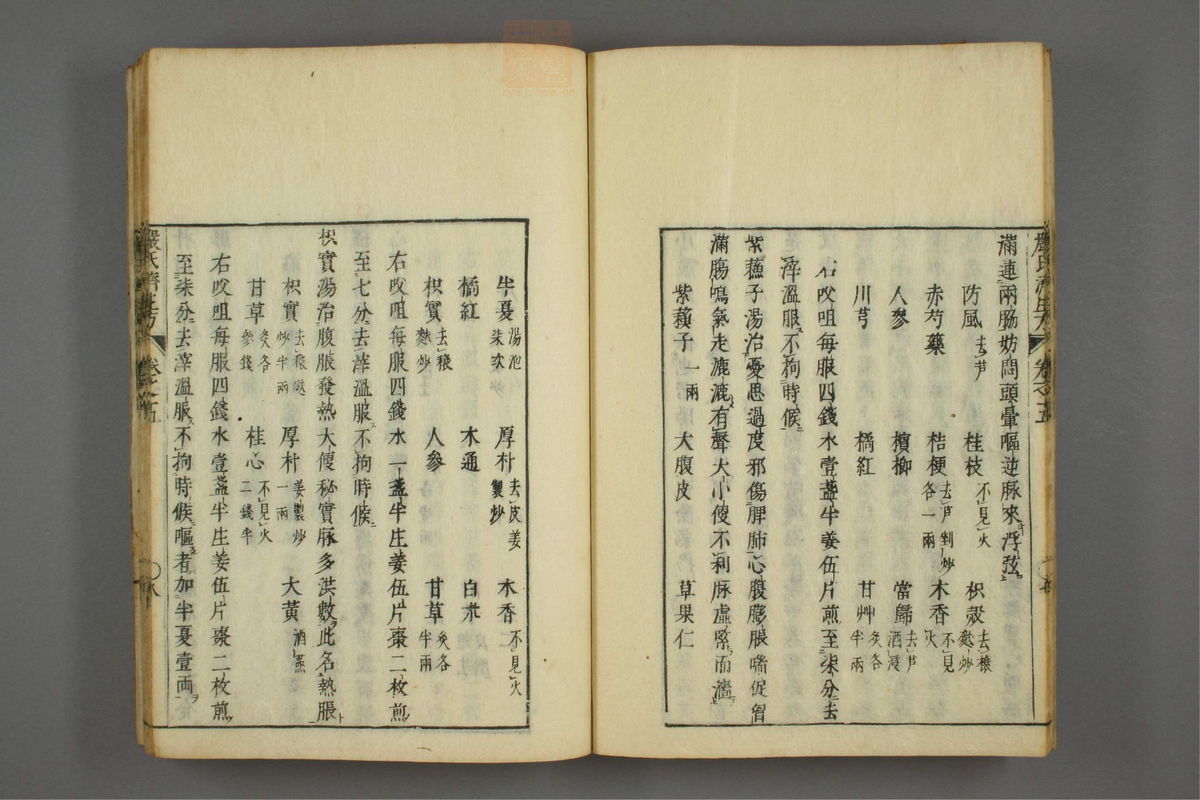 滿連兩脇妨悶頭暈嘔逆脉來浮弦
防風去芦 桂枝不見火 枳殻去穰麩炒
赤芍藥 桔梗去芦剉炒各一兩 木香不見火
人參 檳榔 當歸去芦酒浸
川芎 橘紅 甘艸炙各半兩
右㕮咀每服四錢水壹盞半姜伍片煎至柒分去
滓溫服不拘時候
紫蘓子湯治憂思過度邪傷脾肺心腹膨脹喘促胷
滿腸鳴氣走漉漉有聲大小便不利脉虛緊而濇
紫蘓子一兩 大腹皮 草果仁
嚴氏濟生方 卷之五
半夏湯泡柒次炒 厚朴去皮姜製炒 木香不見火
橘紅 木通 白朮
枳實去穰麩炒 人參 甘草炙各半兩
右㕮咀每服四錢水一盞半生姜伍片棗二枚煎
至七分去滓溫服不拘時候
枳實湯治腹脹發熱大便秘實脉多洪數此名熱脹
枳實去穰麩炒半兩 厚朴姜製炒一兩 大黃酒蒸
甘草炙各參錢 桂心不見火二錢半
右㕮咀每服四錢水壹盞半生姜伍片棗二枚煎
至柒分去滓溫服不拘時候嘔者加半夏壹兩
嚴氏濟生方 卷之五